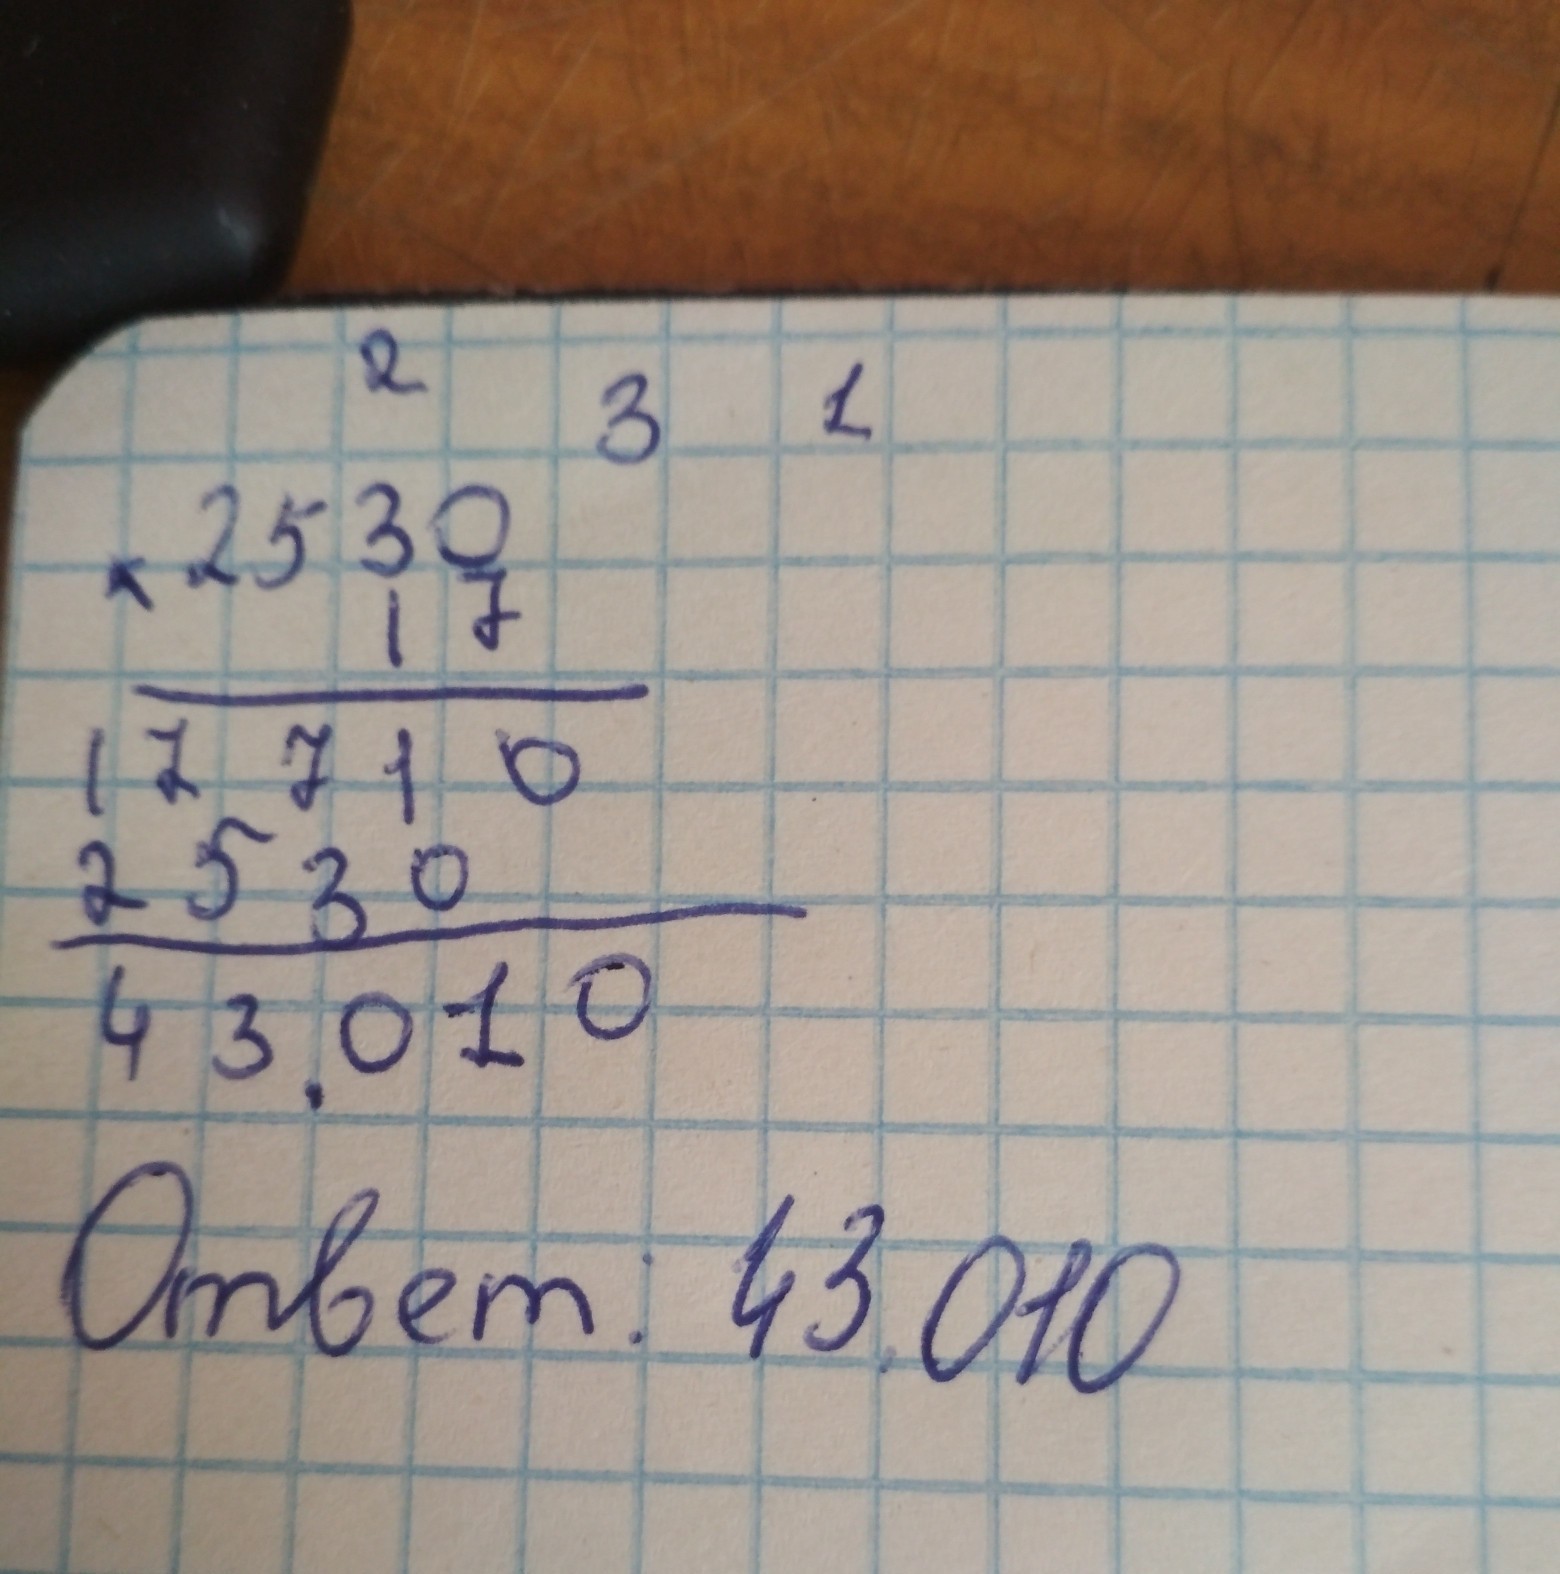 2 3 1
2530
× 17
17710
2530
43.010
Ответ: 43.010